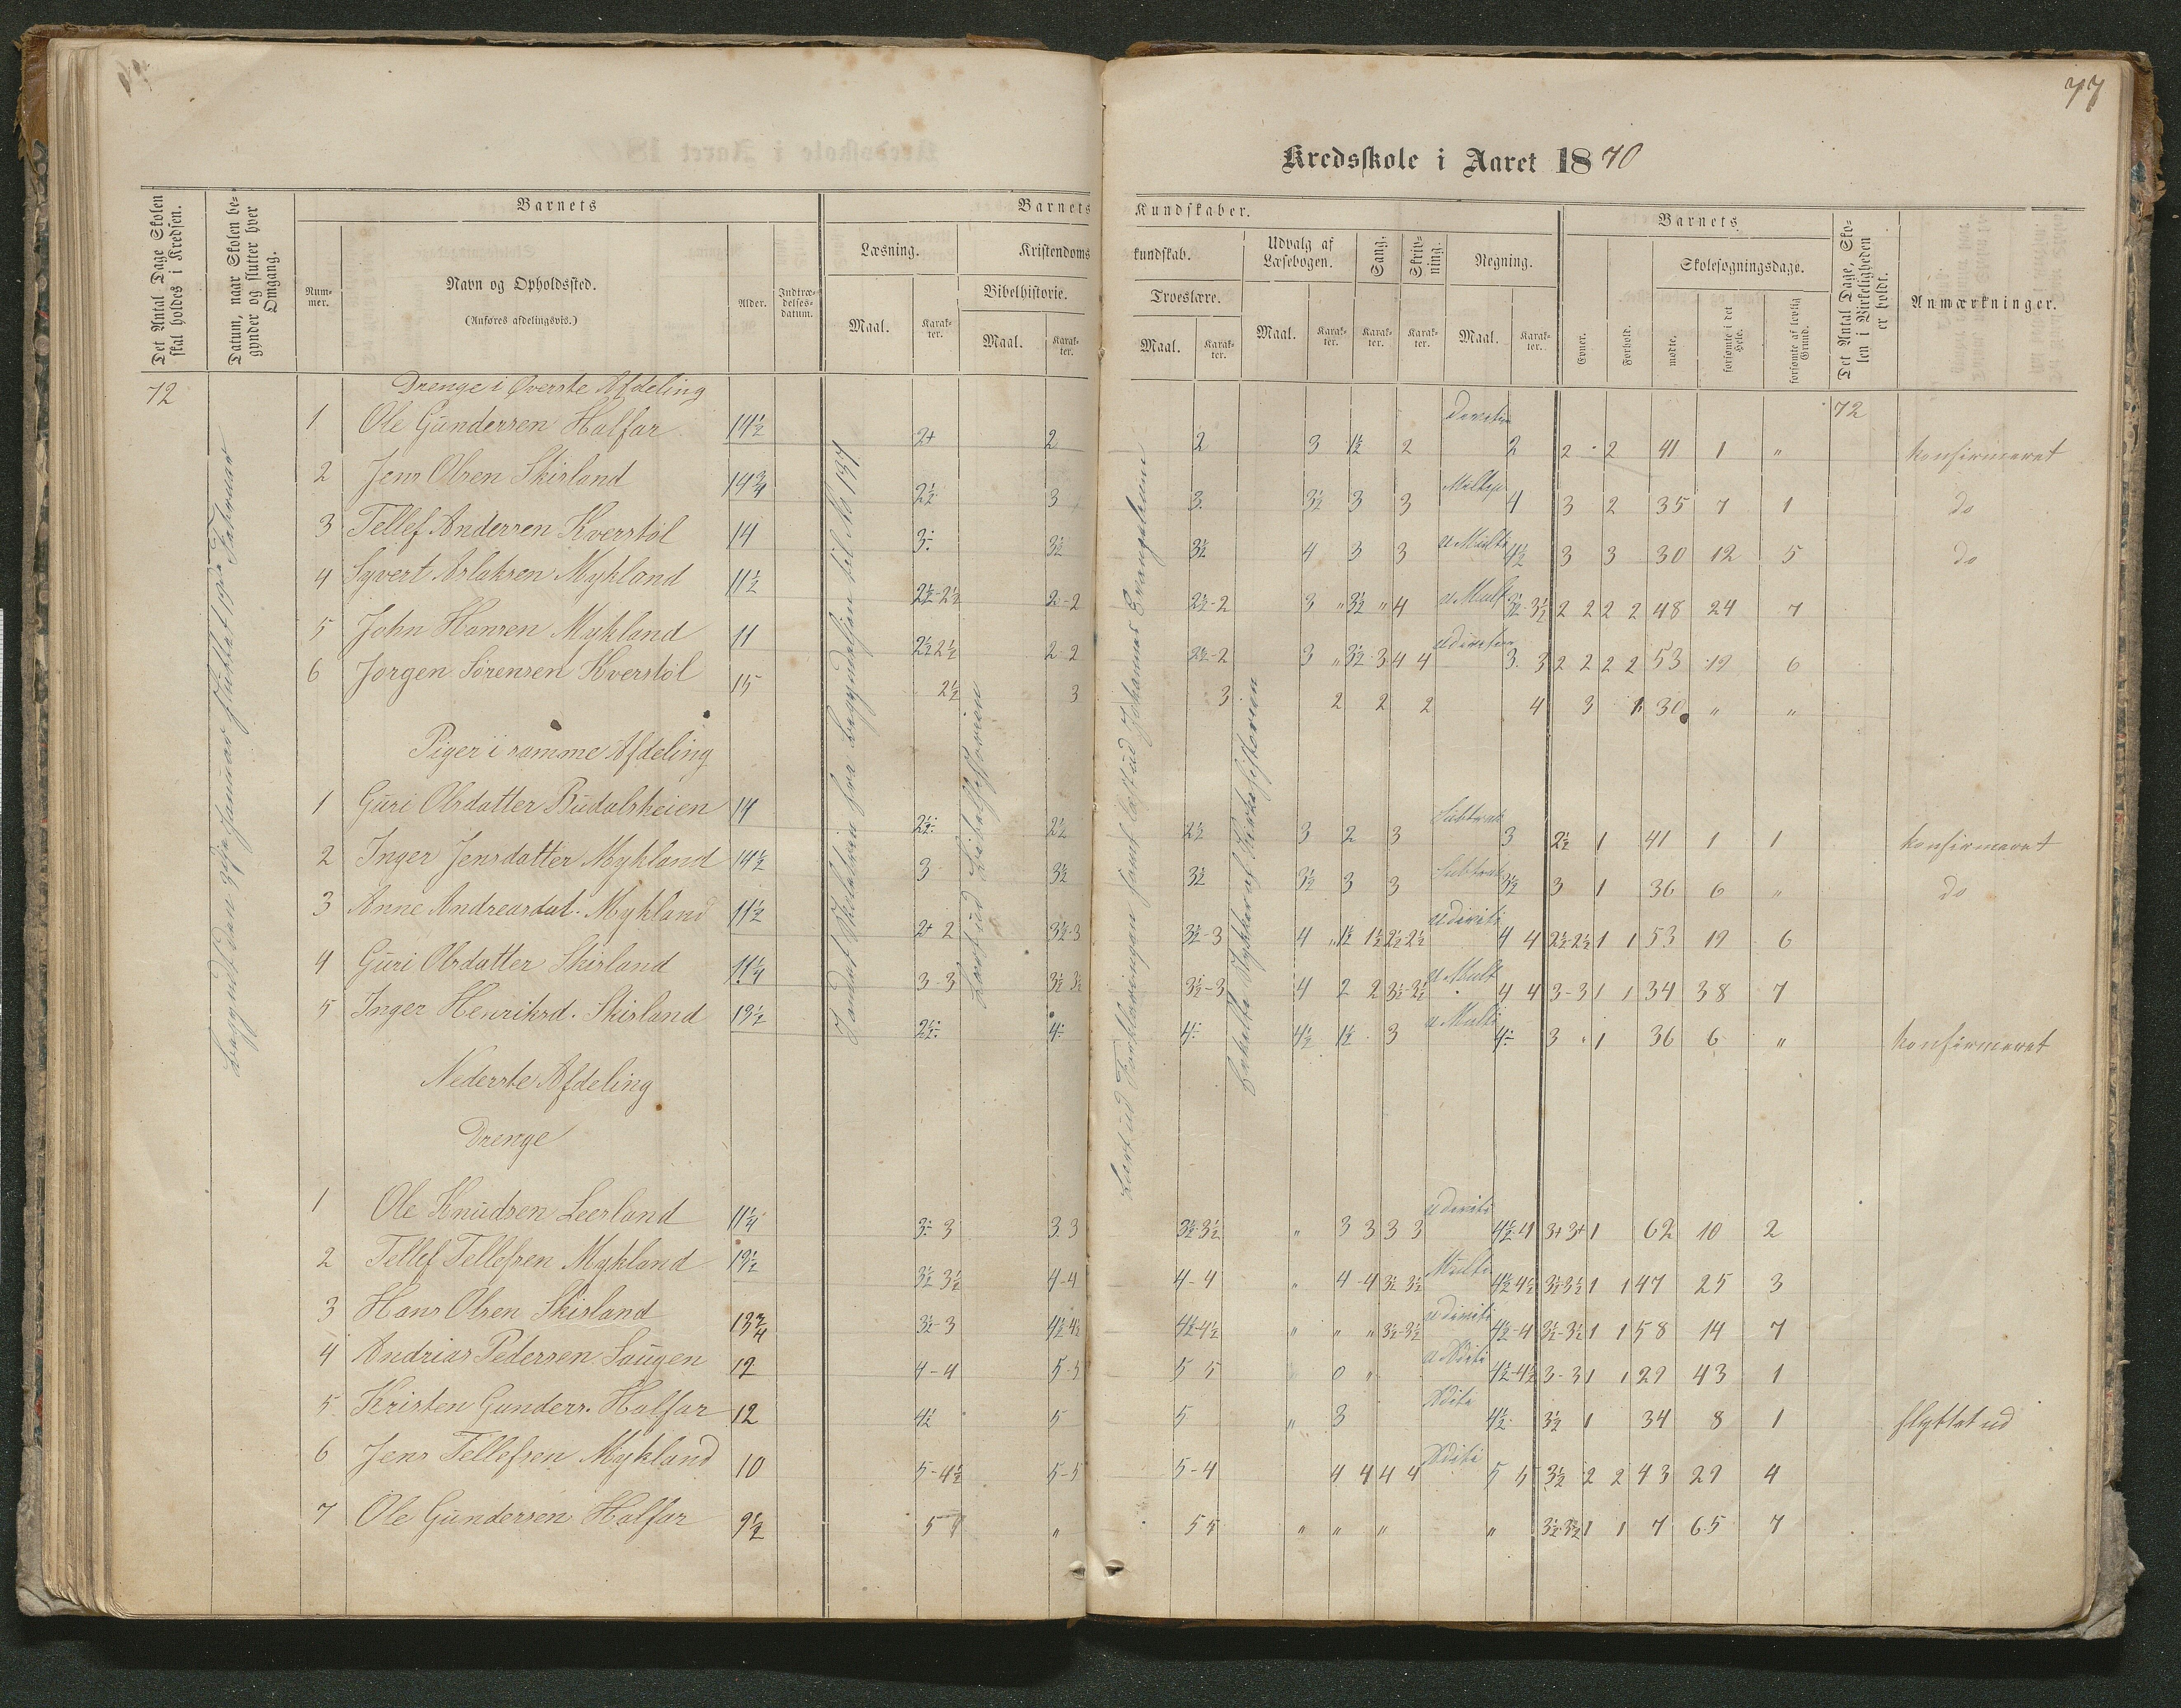 77
Kredsskole i Aaret 1870
Det Antal Dage Skolen skal holdes i Kredsen.
Datum, naar Skolen begynder og slutter hver Omgang.
Barnets
Nummer.
Navn og Opholdssted.
(Anføres afdelingsvis.)
Alder.
Indtrædelsesdatum.
Barnets
Læsning.
Maal.
Karakter.
Kristendoms
Bibelhistorie.
Maal.
Karakter.
Kundskaber.
kundskab.
Troeslære.
Maal.
Karakter.
Udvalg af Læsebogen.
Maal.
Karakter.
Sang.
Karakter.
Skrivning.
Karakter.
Regning.
Maal.
Karakter.
Barnets
Evner.
Forhold.
Skolesøgningsdage.
mødte.
forsømte i det Hele.
forsømte af lovlig Grund.
Det Antal Dage, Skolen i Virkeligheden er holdt.
Anmærkninger.
72
Drenge i Øverste Afdeling
72
1 Ole Gundersen Halfar 14½ 2+ 2 2 3 1½ 2 2 2 2 41 1 " konfirmeret
2 Jens Olsen Skisland 14¾ 2½ 3 3 3½ 3 3 4 3 2 35 7 1 do
3 Tellef Andersen Kverstøl 14 3÷ 3½ 3½ 4 3 3 4½ 3 3 30 12 5 do
4 Syvert Aslaksen Mykland 11½ 2½-2½ 2-2 2½-2 3 " 3½ " 4 u Mult 3½-3½ 2 2 2 2 48 24 7
5 John Hansen Mykland 11 2½ 2½ 2 2 2½-2 3 " 3½ 3 4 4 3 3 2 2 2 2 53 19 6
6 Jørgen Sørensen Kverstøl 15 2½ 3 3 2 2 2 4 3 1 30 " "
Piger i samme Afdeling
1 Guri Olsdatter Rudalsheien 14 2½÷ 2½ 2½ 3 2 3 Subtrak 3 2½ 1 41 1 1 konfirmeret
2 Inger Jensdatter Mykland 14½ 3 3½ 3½ 3½ 3 3 Subtrak 3½ 3 1 36 6 " do
3 Anne Andreasdat. Mykland 11½ 2+ 2 3½-3 3½-3 4 " 1½ 1½ 2½ 2½ 4 4 2½-2½ 1 1 53 19 6
4 Guri Olsdatter Skisland 11¼ 3-3 3½ 3½ 3½-3 4 2 2 3½-3½ u Mult 4 4 3-3 1 1 34 38 7
5 Inger Henriksd. Skisland 13½ 2½÷ 4÷ 4÷ 4½ 1½ 3 u Multi 4÷ 3 1 36 6 " konfirmeret
Nederste Afdeling
Drenge
1 Ole Knudsen Leerland 11¼ 3÷ 3 3 3 3½-3½ " 3 3 3 3 4½-4 3+3+ 1 62 10 2
2 Tellef Tellefsen Mykland 3½ 3½ 4-4 4-4 " 4-4 3½ 3½ 4½-4½ 3½-3½ 1 1 47 25 3
3 Hans Olsen Skisland 13¾ 3½-3 4½-4½ 4½-4½ " " " 3½-3½ 4½-4 3½-3½ 1 1 58 14 7
4 Andrias Pedersen Saugen 12 4-4 5-5 5 5 0 " 4½-4½ 3-3 1 1 29 43 1
5 Kristen Gunders. Halfar 12 4½ 5 5 " 3 4½ 3½ 1 34 8 1 flyttet ud
6 Jens Tellefsen Mykland 10 5-4½ 5-5 5-4 4 4 4 4 5 5 3½ 2 2 43 29 4
7 Ole Gundersen Halfar 9½ 5 " 5 5 " " " " 3½-3½ 1 1 7 65 7
Læst ud Bibelhistorien
Læst ud Forklaringen samt læst ud Johannes Evangelium